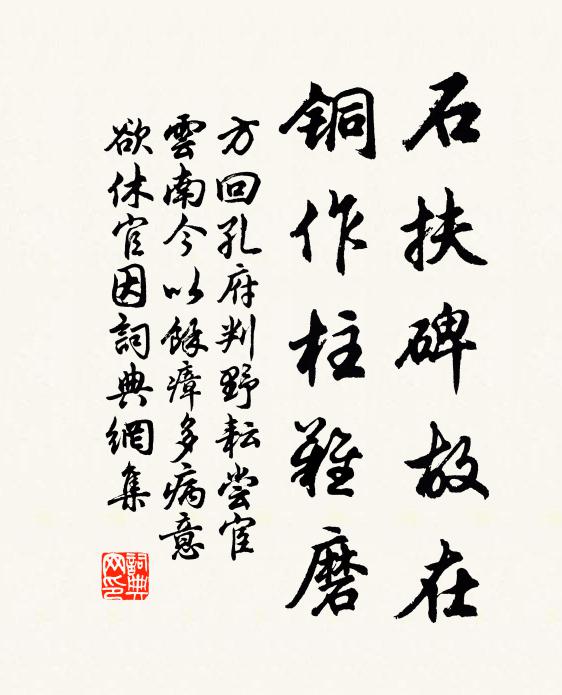 石扶碑故在
銅作柱難磨
方回孔府判野耘嘗宦
雲南今以餘瘴多病意
欲休官因詞典網集
詞典网印